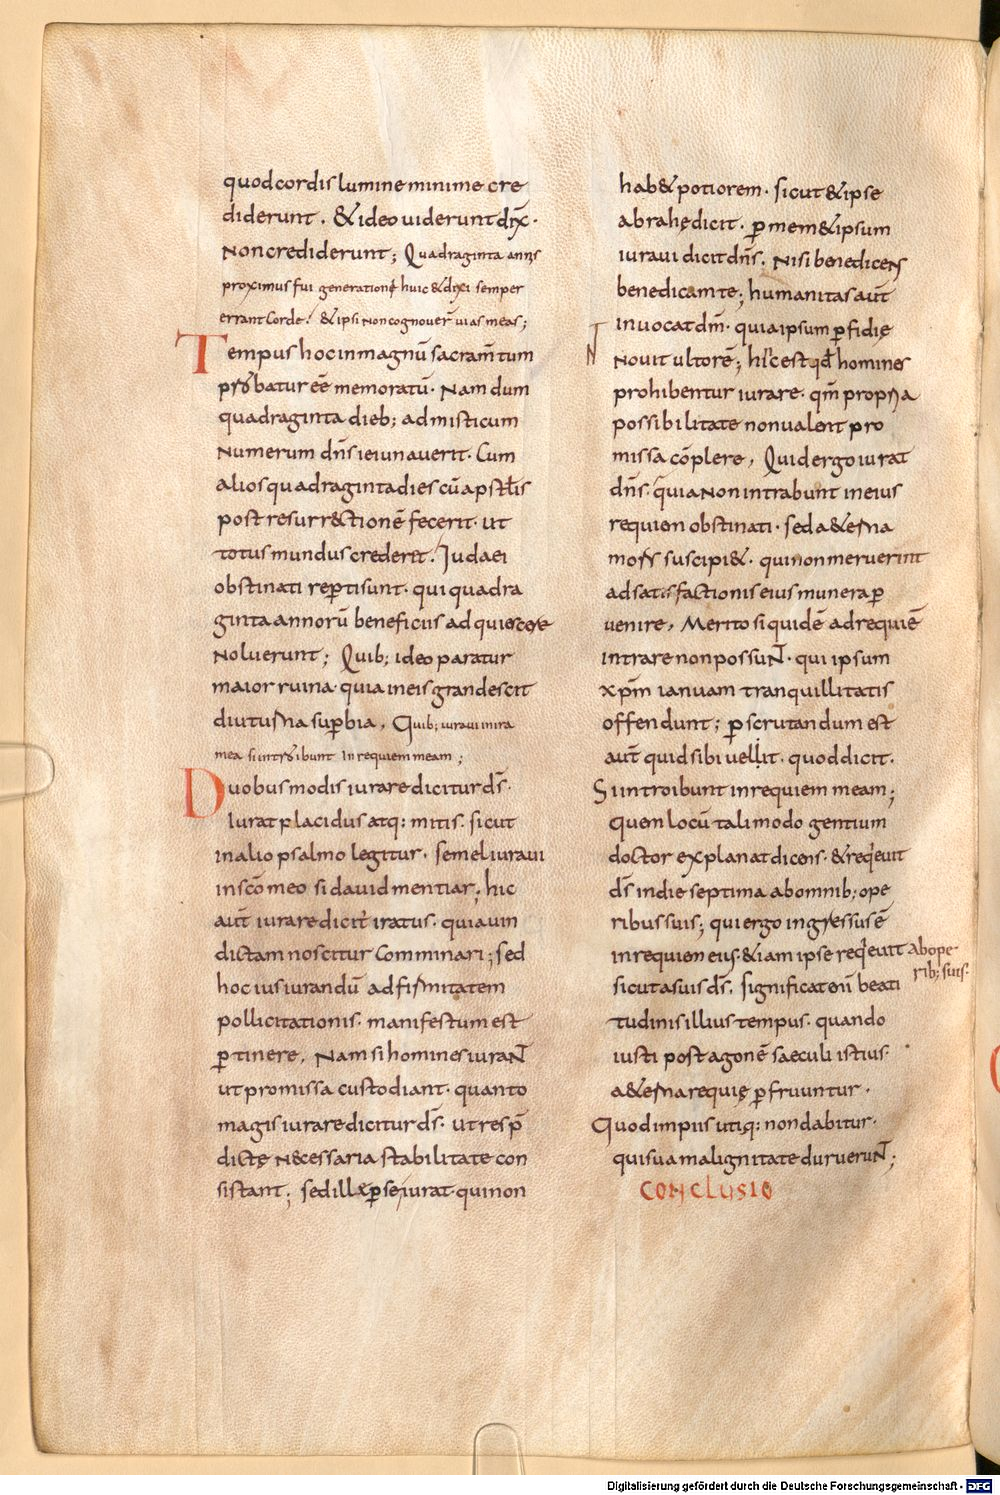 quod cordis lumine minime cre
diderunt. & ideo uiderunt dix̄·
Non crediderunt; Quadraginta annis
proximus fui generationi huic & dixi semper
errant Corde. & ipsi Non cognouer̄ uias meas;
Tempus hoc in magnū sacram̄tum
probatur eē memoratū· Nam dum
quadraginta dieb; ad misticum
Numerum dn̄s ieiunauerit. Cum
alios quadraginta dies cū apstłis
post resurr&ctionē fecerit· ut
totus mundus crederet. Iudaei
obstinati rep̄ti sunt· qui quadra
ginta annorū beneficiis adquiescere
Noluerunt; Quib; ideo paratur
maior ruina· quia in eis grandescit
diuturna sup̄bia, Quib; iuraui in ira
mea si introibunt In requiem meam;
Duobus modis iurare dicitur ds̄·
Iurat placidus atq: mitis. sicut
in alio psalmo legitur· semel iuraui
in scō meo si dauid mentiar; hic
aūt iurare dicit iratus· quia uin
dictam noscitur Comminari; sed
hoc iusiurandū ad firmitatem
pollicitationis· manifestum est
p̱tinere, Nam si homines iuraNT
ut promissa custodiant· quanto
magis iurare dicitur ds̄· ut res p̄
dictę N&cessaria stabilitate con
sistant; sed ille p̱ se iurat· qui non
hab& potiorem· sicut & ipse
abrahę dicit· p̱ mem&ipsum
iuraui dicit dn̄s. Nisi benedicens
benedicam te; humanitas aūt
inuocat dm̄· quia ipsum p̱fidię
Nouit ultorē; hic est qđ homines
prohibentur iurare· qm̄ propria
possibilitate non ualent pro
missa cōplere, Quid ergo iurat
dn̄s· quia Non intrabunt in eius
requiem obstinati· sed a&erna
mors suscipi&· qui non meruerint
ad satisfactionis eius munera p̱
uenire, Merito siquidē ad requiē
intrare non possuNT· qui ipsum
xp̄m ianuam tranquillitatis
offendunt; p̱scrutandum est
aūt quid sibi uellit· quod dicit·
Si introibunt in requiem meam;
Quem locū tali modo gentium
doctor explanat dicens· & req̇euit
ds̄ in die septima ab omnib; ope
ribus suis; qui ergo ingressus ē
in requiem eius· & iam ipse req̇euit ab ope
rib; suis·
sicut a suis ds̄. significat eni beati
tudinis illius tempus· quando
iusti post agonē saeculi istius·
a&erna requię p̱fruuntur·
Quod impiis utiq: non dabitur·
qui sua malignitate duruerūNT;
CONCLUSIO
Digitalisierung gefördert durch die Deutsche Forschungsgemeinschaft - DFG